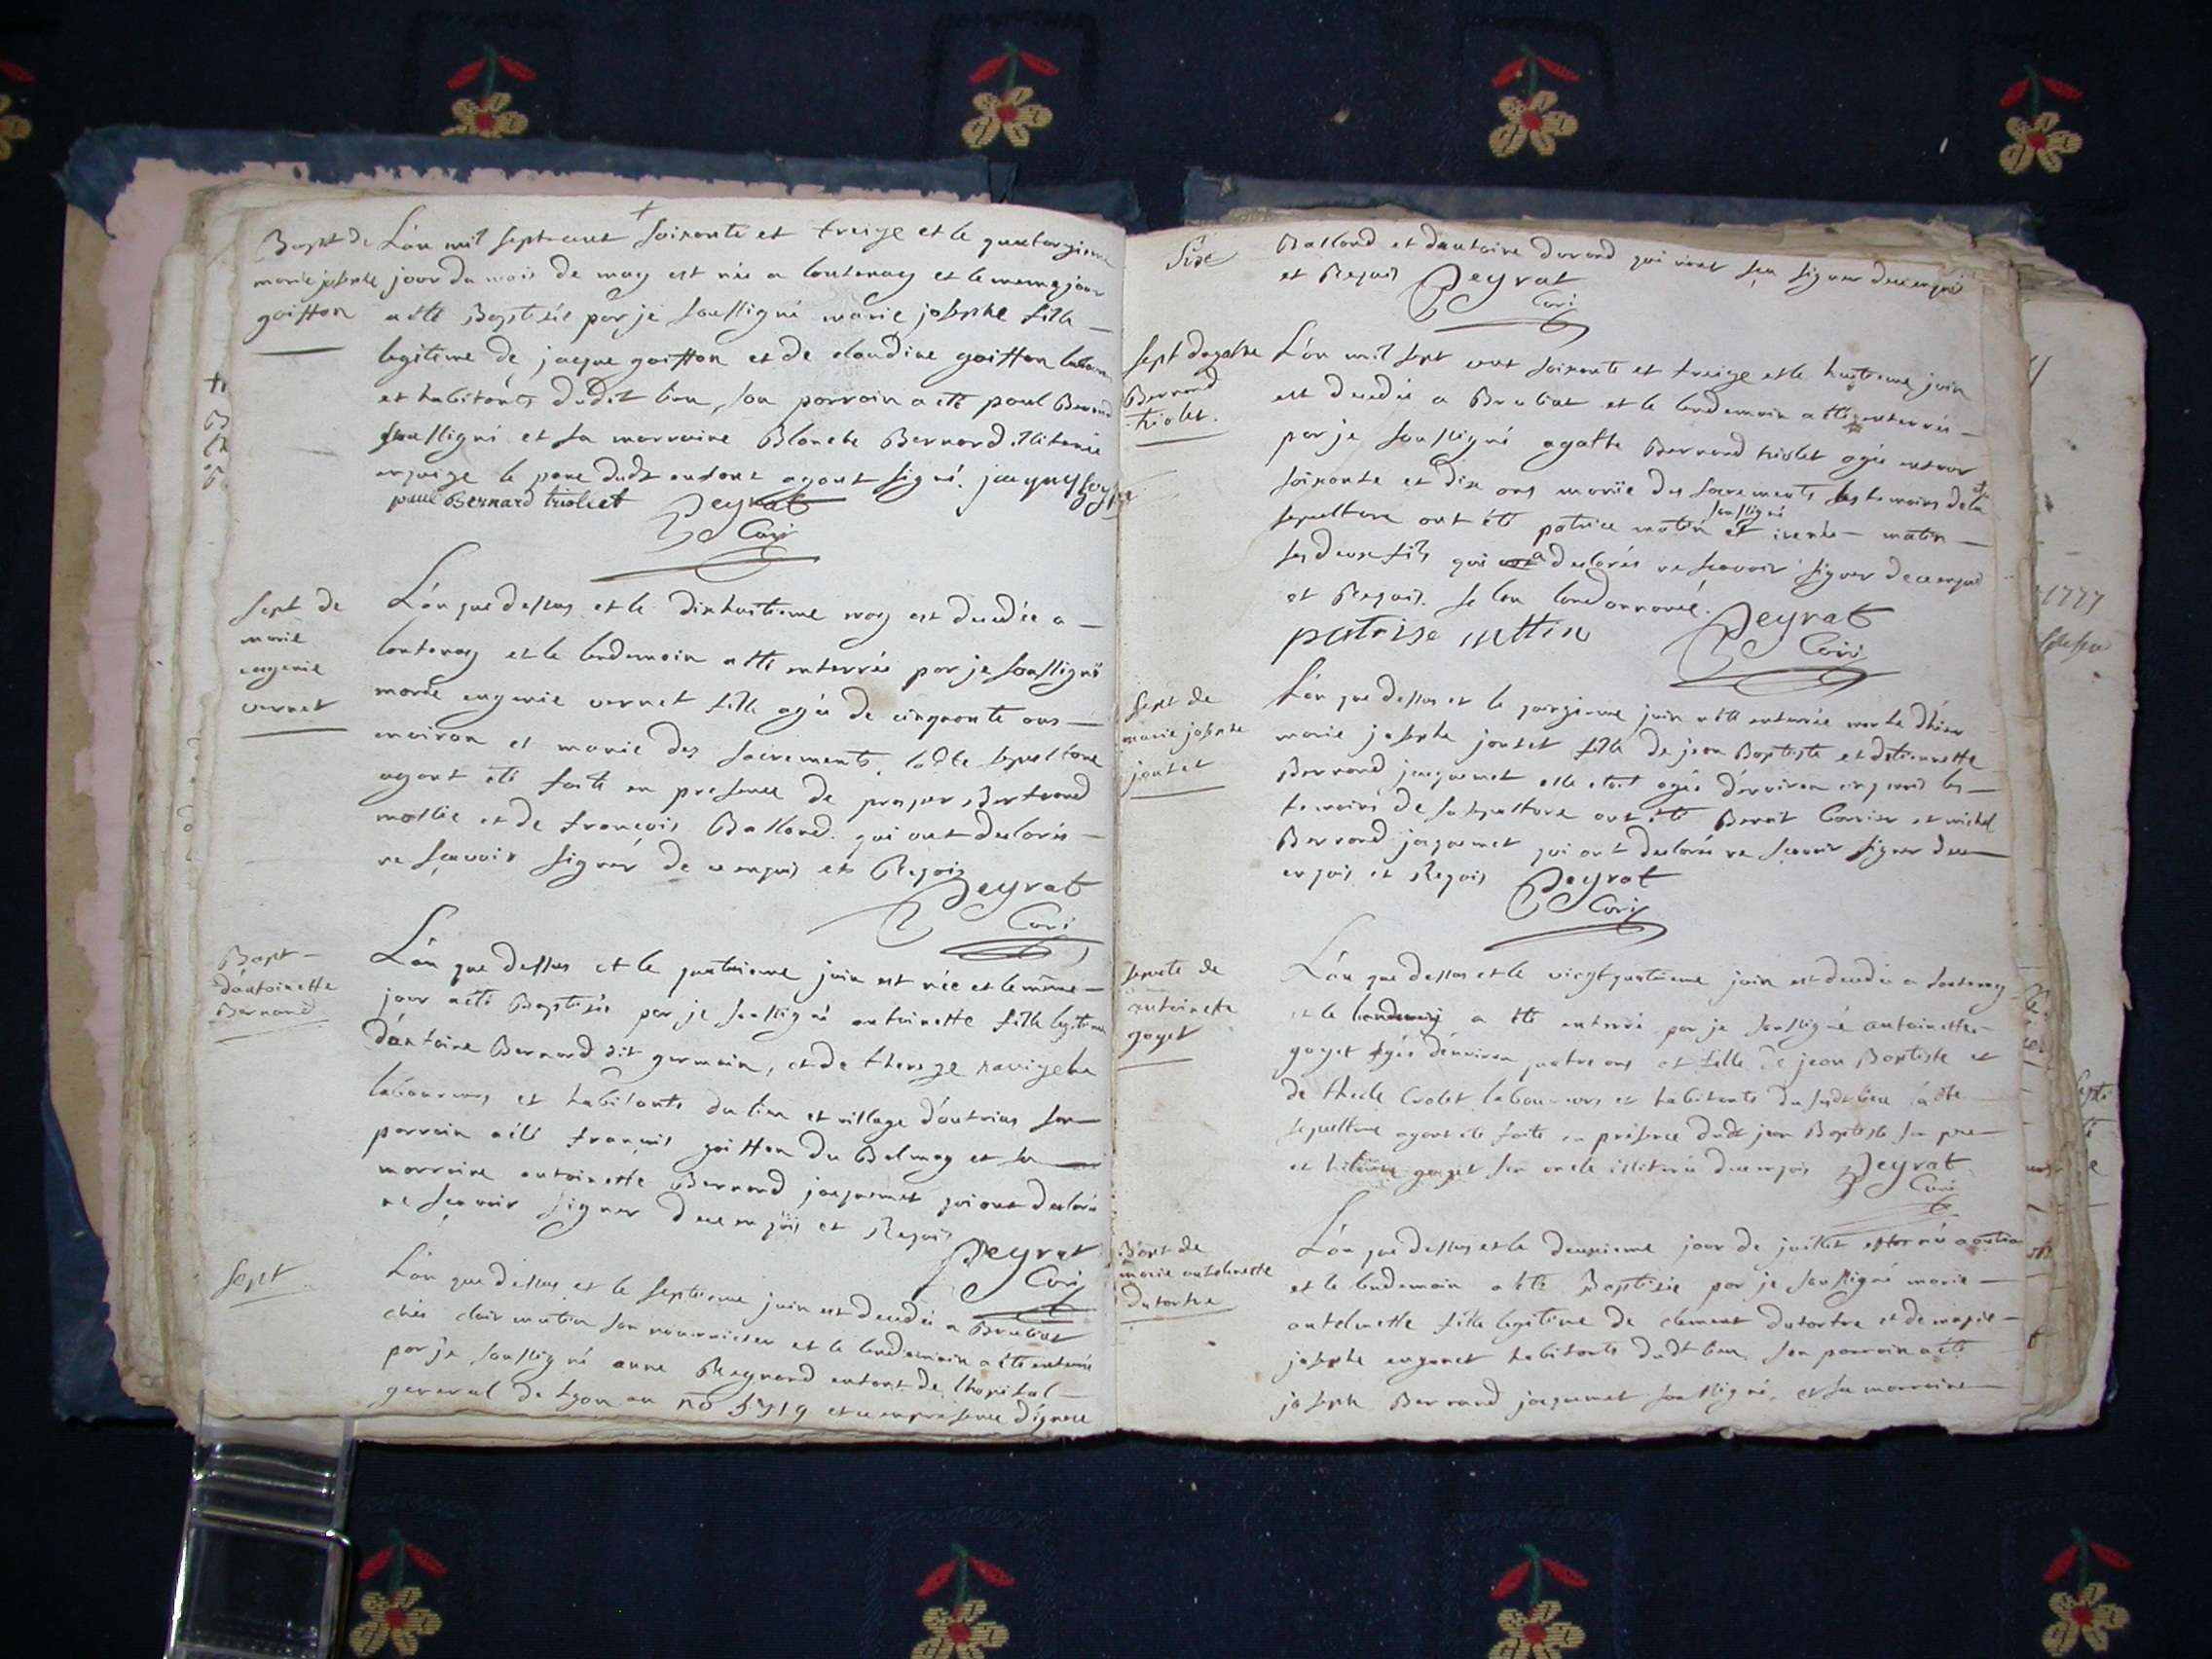 Bapt de
marie josephe
goiffon
L'an mil sept cent soixante et treize et le quatorzieme
jour du mois de may est née a lantenay et le meme jour
a été Baptisée par je soussigné marie josephe fille
legitime de jacque goiffon et de claudine goiffon
et habitants dudit lieu, son parrain a été paul Bernard
soussigné et sa marraine Blanche Bernard illiterée
enquise le pere dudt enfant ayant signé. jacques
paul Bernard triollet Peyrat
Curé
Sept de
marie
eugenie
vernet
L'an que dessus et le dixhuitieme may est decedée a
lantenay et le lendemain a été enterrée par je soussigné
marie eugenie vernet fille agée de cinquante ans
environ et munie des sacrements, ladte sepulture
ayant été faite en presence de prosper Bertrand
et de francois Balland qui ont declarés
ne scavoir signér de ce enquis et Requis
Peyrat
Curé
Bapt
d'antoinette
Bernard
L'an que dessus et le quatrieme juin est née et le même
jour a été Baptisée par je soussigné antoinette fille legitime
d'antoine Bernard dit germain, et de therese
laboureurs et habitants du lieu et village d'outriaz son
parrain a été francois goiffon du Balmay et sa
marraine antoinette Bernard jacquemet qui ont declaré
ne scavoir signer de ce enquis et Requis
Peyrat
Curé
Sept
L'an que dessus et le septieme juin est decedée a Brenod
chés clair matin son nourricier et le lendemain a été enterrée
par je soussigné anne Reynard enfant de l'hopital
general de Lyon au no 5719 et ce en presence d'ignace
Balland et d'antoine durand qui n'ont sçu signer de ce enquis
et Requis Peyrat
Curé
Sept d'agathe
Bernard
triolet.
L'an mil sept cent soixante et treize et le huitieme juin
est decedée a et le lendemain a été enterrée
par je soussigné agathe Bernard triolet agée environ
soixante et dix ans munie des sacrements les temoins de la
sepulture ont été patrice matin soussigné et irenée matin
ses deux fils qui a declarés ne scavoir signer de ce enquis
et Requis
Peyrat
Curé
Sept de
marie josephe
joutet
L'an que dessus et le quinzieme juin a été enterrée morte d'hier
marie josephe joutet fille de jean Baptiste et d'etiennette
Bernard jacquemet elle etoit agée d'environ cinq mois les
temoins de sa sepulture ont été Benoit Carrier et michel
Bernard jacquemet qui ont declarés ne scavoir signer de ce
enquis et Requis Peyrat
Curé
Sepulte de
antoinette
goyet
L'an que dessus et le vingt quatrieme juin est decedée a lantenay
et le lendemain a été enterré par je soussigné antoinette
goyet agée d'environ quatre ans et fille de jean Baptiste et
de thecle Crolet laboureurs et habitants du susdt lieu ladte
sepulture ayant été faite en présence dudt jean Baptiste son pere
et goyet son oncle illiterés de ce enquis Peyrat
Curé
Bapt de
marie antelmette
dutartre
L'an que dessus et le deuxieme jour de juillet est née a
et le lendemain a été Baptisée par je soussigné marie
antelmette fille legitime de clement dutartre et de marie
josephe habitants dudt lieu, son parrain a été
joseph Bernard jacquemet soussigné, et sa marraine